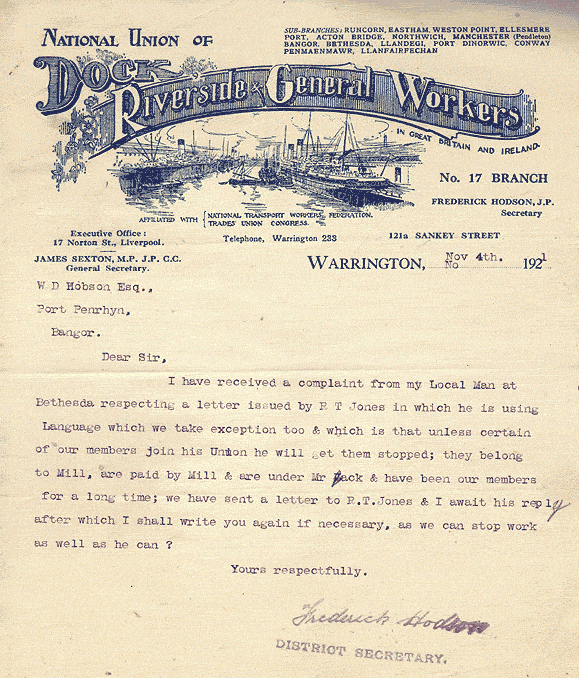 NATIONAL UNION OF
DOCK
RIVERSIDE & GENERAL WORKERS
IN GREAT BRITAIN AND IRELAND.
SUB-BRANCHES: RUNCORN, EASTHAM, WESTON POINT, ELLESMERE
PORT, ACTON BRIDGE, NORTHWICH, MANCHESTER (Pendleton)
BANGOR, BETHESDA, LLANDEGI, PORT DINORWIC, CONWAY
PENMAENMAWR, LLANFAIRFECHAN
No. 17 BRANCH
FREDERICK HODSON, J.P.
Secretary
AFFILIATED WITH { NATIONAL TRANSPORT WORKERS FEDERATION.
TRADES UNION CONGRESS.
Executive Office :
17 Norton St., Liverpool.
JAMES SEXTON, M.P. J.P. C.C.
General Secretary.
Telephone, Warrington 233
121a SANKEY STREET
WARRINGTON, Nov 4th. 1921
No
W D Hobson Esq.,
Port Penrhyn,
Bangor.
Dear Sir,
I have received a complaint from my Local Man at
Bethesda respecting a letter issued by R T Jones in which he is using
Language which we take exception too & which is that unless certain
of our members join his Union he will get them stopped; they belong
to Mill, are paid by Mill & are under Mr & have been our members
for a long time; we have sent a letter to R.T.Jones & I await his reply
after which I shall write you again if necessary, as we can stop work
as well as he can ?
Yours respectfully.
Frederick Hodson
DISTRICT SECRETARY.